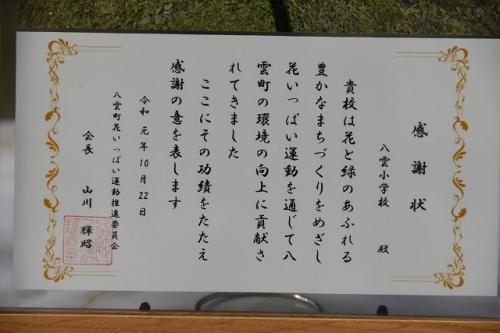 感謝状
八雲小学校 殿
貴校は花と緑のあふれる
豊かなまちづくりをめざし
花いっぱい運動を通じて八
雲町の環境の向上に貢献さ
れてきました
ここにその功績をたたえ
感謝の意を表します
令和元年10月22日
八雲町花いっぱい運動推進委員会
会長 山川 輝昭